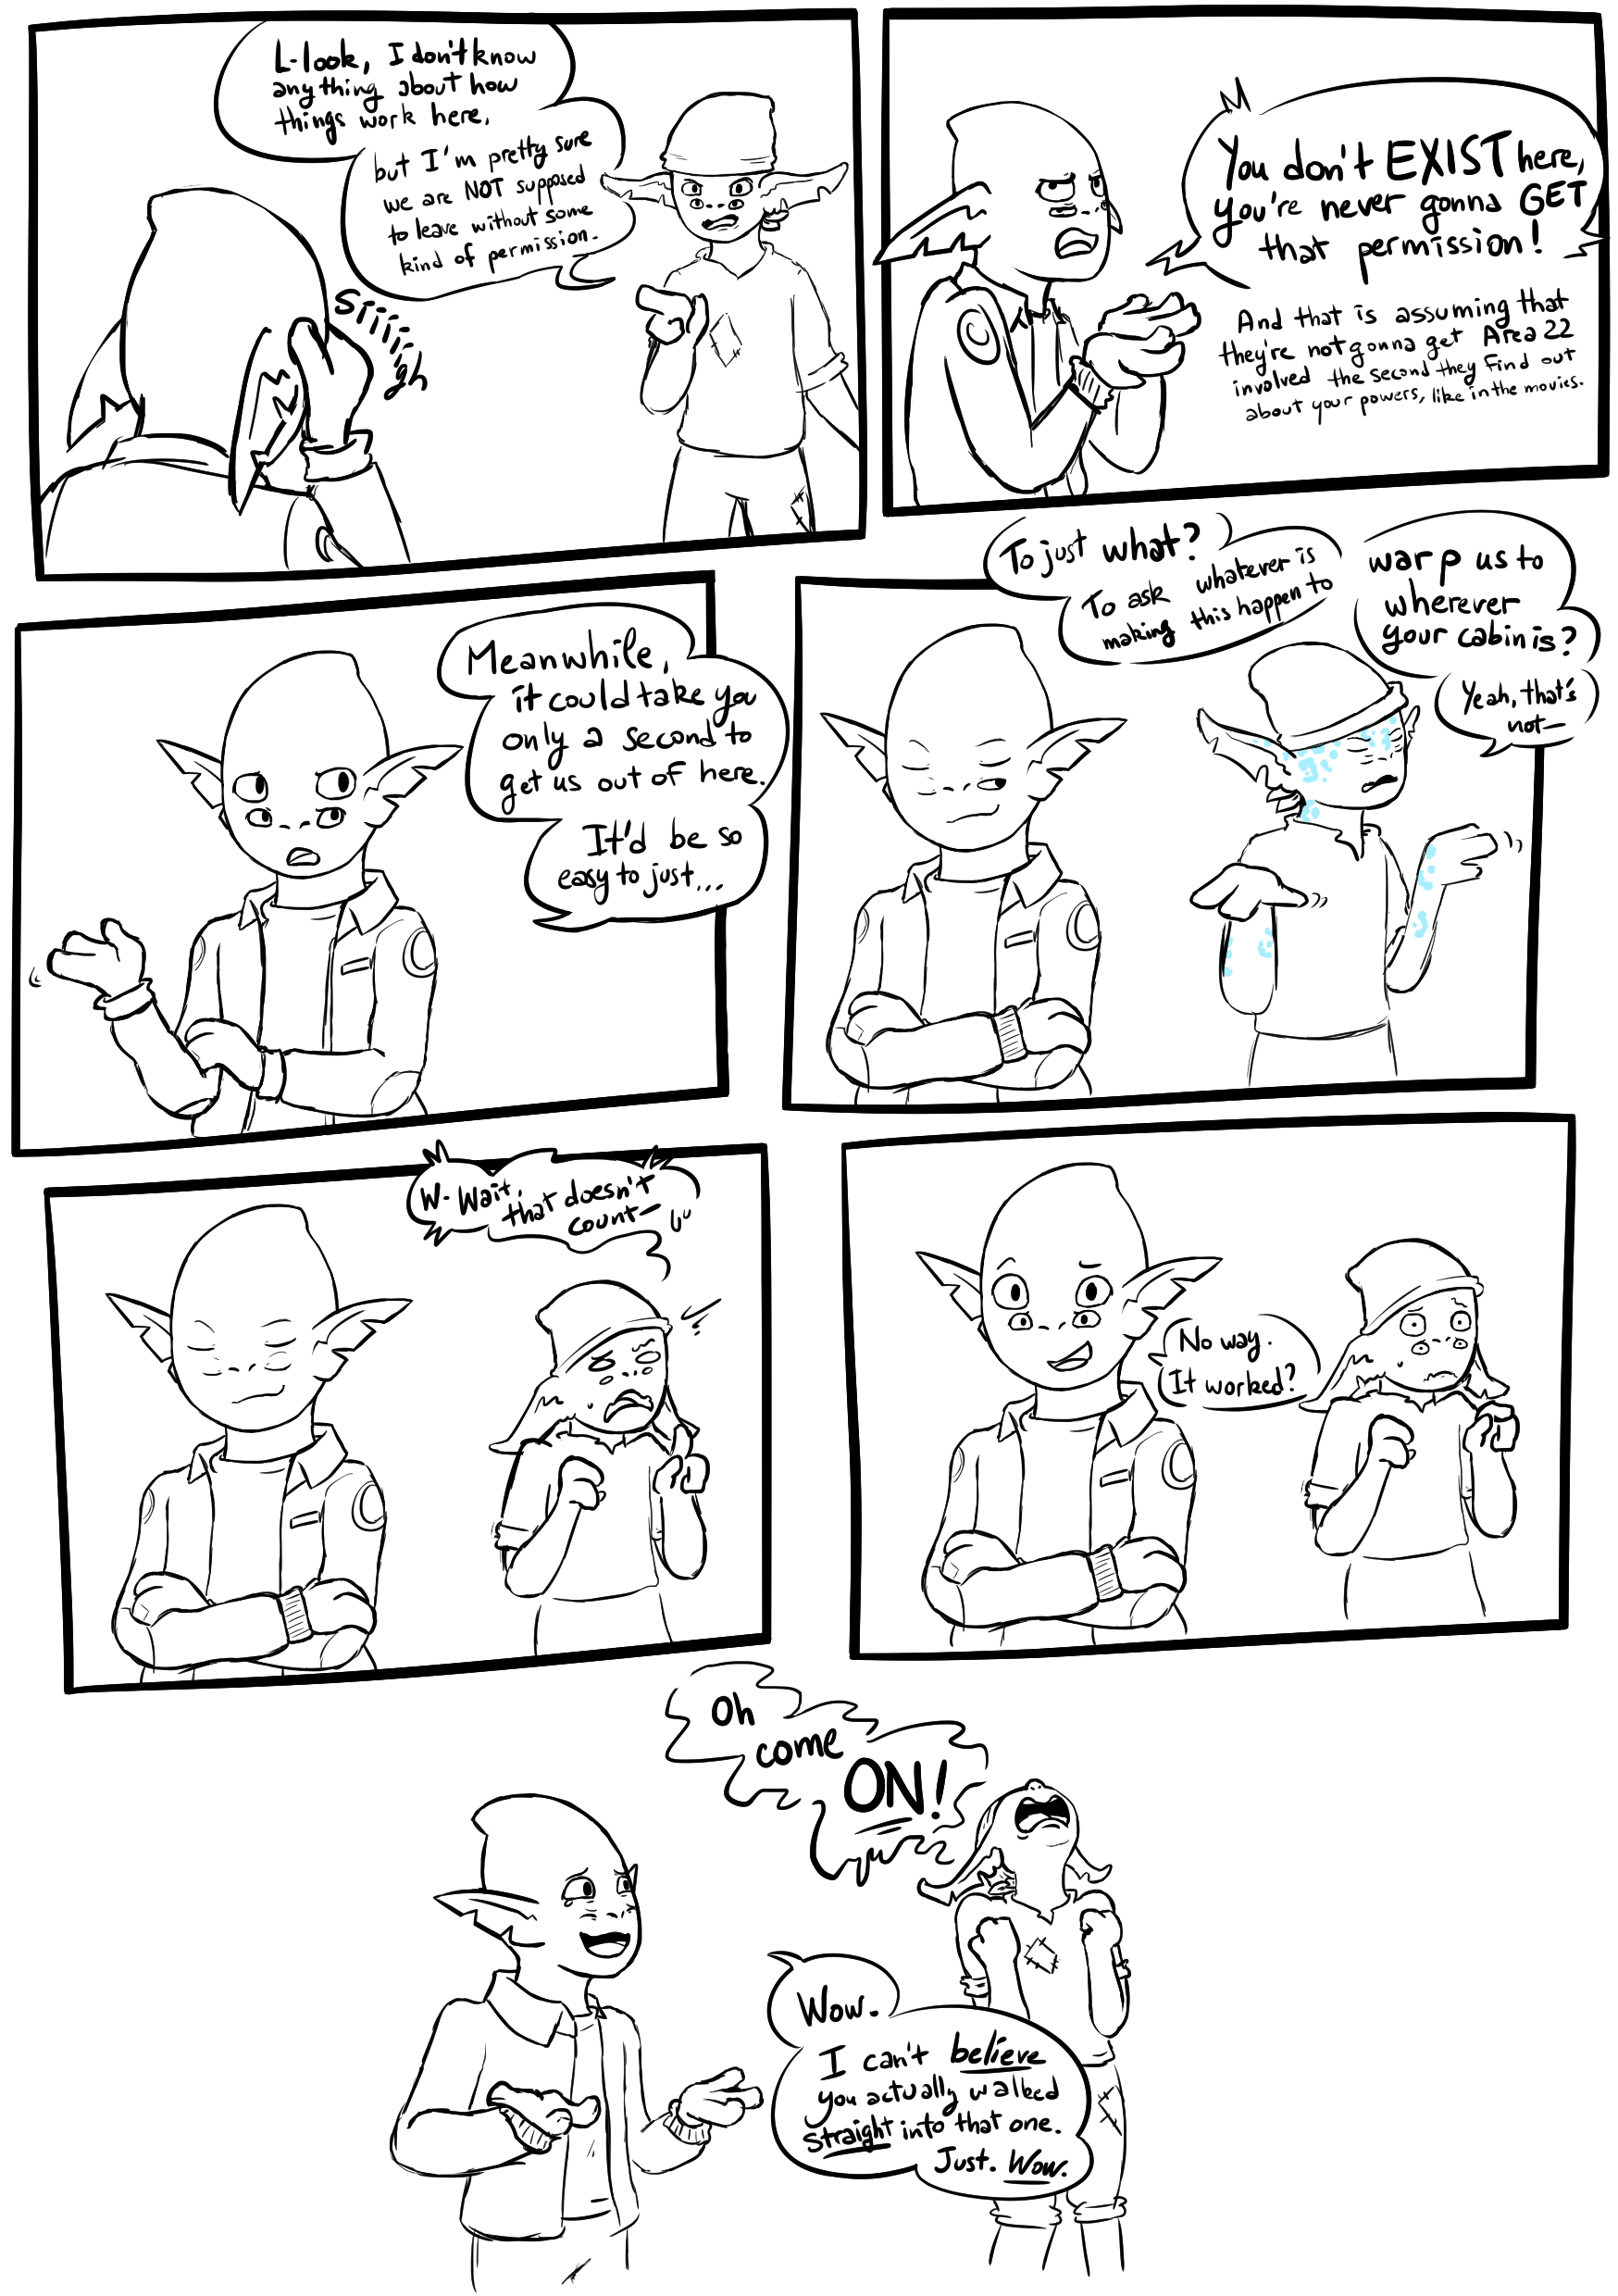 L-look, I don't know
anything about how
things work here,
but I'm pretty sure
we are NOT supposed
to leave without some
kind of permission.
Siiiii-
gh
You don't EXIST here,
you're never gonna GET
that permission!
And that is assuming that
they're not gonna get Area 22
involved the second they find out
about your powers, like in the movies.
Meanwhile,
it could take you
only a second to
get us out of here.
It'd be so
easy to just...
To just what?
To ask whatever is
making this happen to
warp us to
wherever
your cabin is?
Yeah, that's
not—
W-Wait,
that doesn't
count—
No way.
It worked?
Oh
come
ON!
Wow.
I can't believe
you actually walked
straight into that one.
Just. Wow.